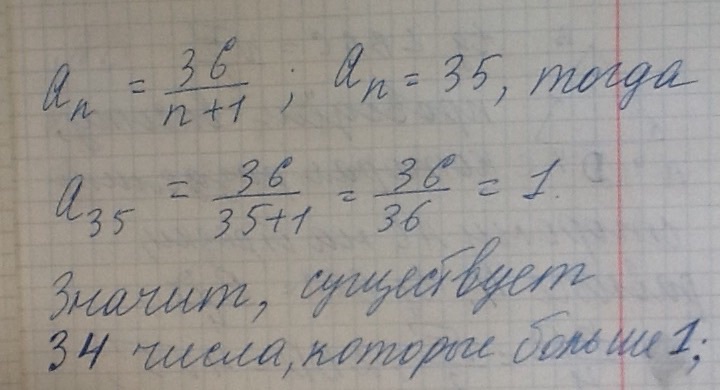 aₙ = 36/(n+1) ; aₙ = 35, тогда
a₃₅ = 36/(35+1) = 36/36 = 1.
Значит, существует
34 числа, которые больше 1;